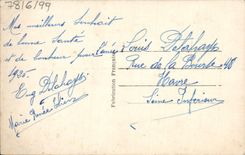 78/6/99
Mes meilleurs Souhait
de bonne Santé
et de bonheur pour l'année
1935.
Eug Delahays
Marie
Fabrication Française
Louis Delahays
Rue de la Bourse 40
Havre
Seine Inférieur